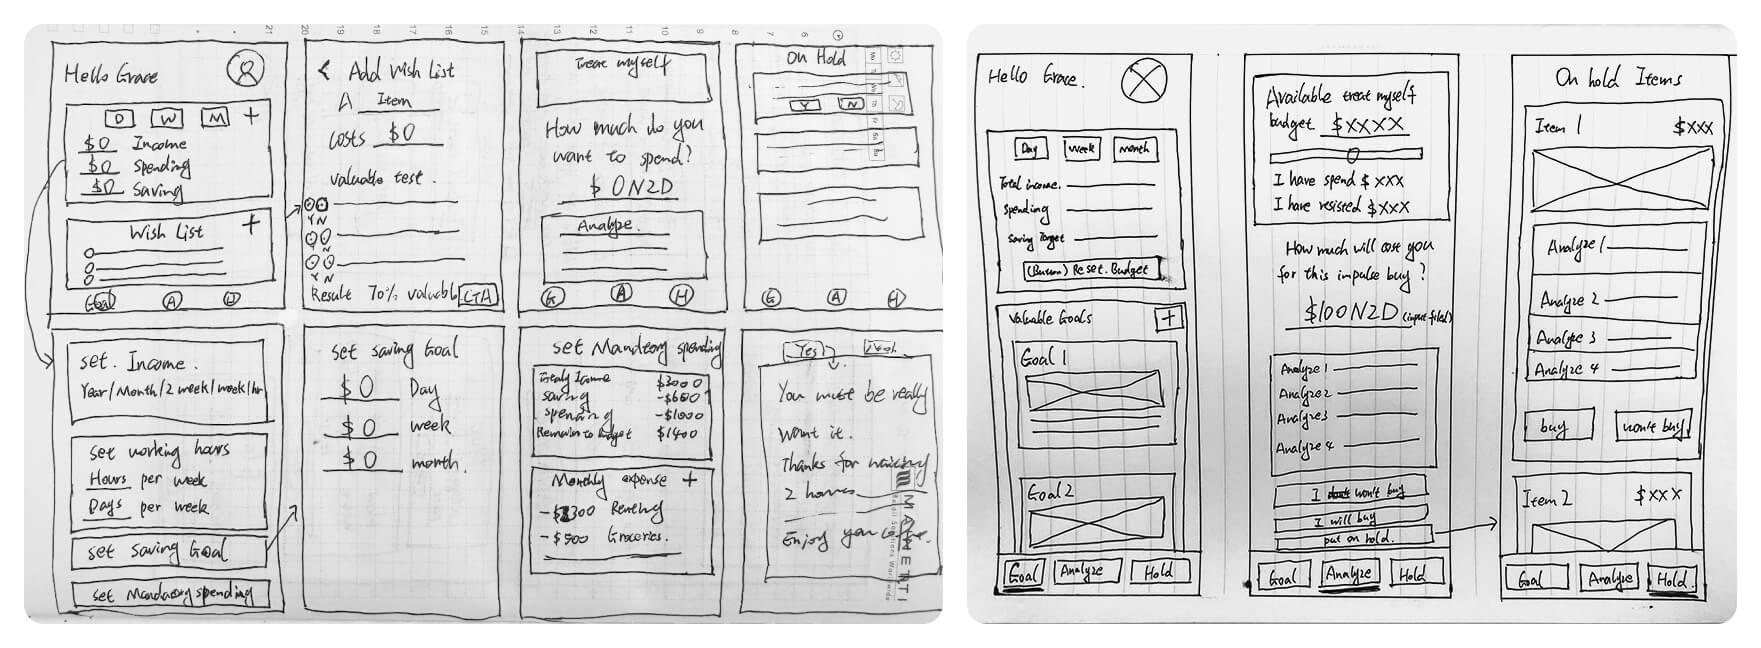 Hello Grace
D W M +
$0 Income
$0 Spending
$0 Saving
Wish List +
Goal A H
< Add Wish List
A Item
costs $0
valuable test.
Y N
Y N
Result 70% valuable CTA
Treat myself
How much do you
want to spend?
$ 0N2D
Analyze.
G A H
On Hold
Y N
G A H
set. Income.
Year/Month/2 week/week/hr
set working hours
Hours per week
Days per week
set saving Goal
set Mandaeory spending
set saving Goal
$0 Day
$0 week
$0 month.
set Mandaeory spending
$3000
saving -$600
spending -$1000
Remain to budget $1400
Monthly expense +
Renting
-$500 Groceries.
Yes
You must be really
Want it.
Thanks for waiting
2 hours
Enjoy your
21 20 19 18 17 16 15 14 13 12 11 10 9 8 7 6
Hello Grace.
Day week month
Total income.
Spending
Saving Target
(Button) Reset. Budget
Valuable Goals +
Goal 1
Goal 2
Goal Analyze Hold
Available treat myself
budget $XXXX
I have spend $XXX
I have resisted $XXX
How much will cost you
for this impulse buy?
$100N2D (input filed)
Analyze 1
Analyze 2
Analyze 3
Analyze 4
I won't buy
I will buy
put on hold.
Goal Analyze Hold
On hold Items
Item 1 $XXX
Analyze 1
Analyze 2
Analyze 3
Analyze 4
buy won't buy
Item 2 $XXX
Goal Analyze Hold.